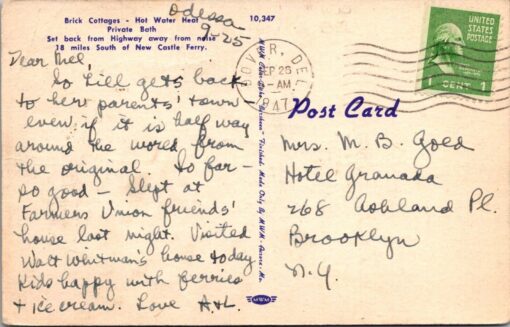 Brick Cottages - Hot Water Heat
Private Bath
Set back from Highway away from noise
18 miles South of New Castle Ferry.
Odessa
9-25
10,347
Dear Mel,
So Lill gets back
to her parents' town -
even if it is half way
around the world from
the original. So far -
so good - Slept at
Farmers Union friends'
house last night. Visited
Walt Whitman's house today
Kids happy with ferries
+ ice cream. Love A+L
MWM
DOVER, DEL
SEP 26
-AM
1947
UNITED
STATES
POSTAGE
1 CENT 1
Post Card
Mrs. M. B. Gold
Hotel Granada
268 Ashland Pl.
Brooklyn
N.Y.